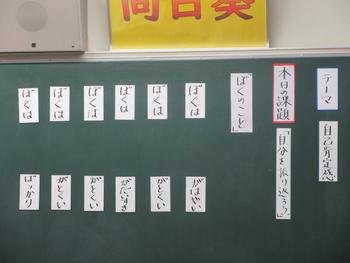 向日葵
テーマ
自己肯定感
本日の課題
「自分を振り返ろう」
「ぼくのこと」
ぼくは
がはやい
ぼくは
がとくい
ぼくは
がだいすき
ぼくは
がとくい
ぼくは
がとくい
ぼくは
ばっかり